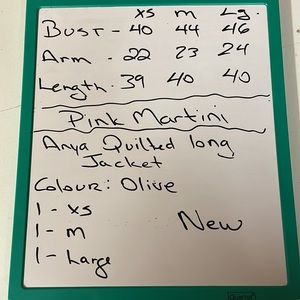 XS M Lg.
Bust - 40 44 46
Arm - 22 23 24
Length - 39 40 40
Pink Martini
Anya Quilted long
Jacket
Colour: Olive
1 - XS
1 - M New
1 - Large